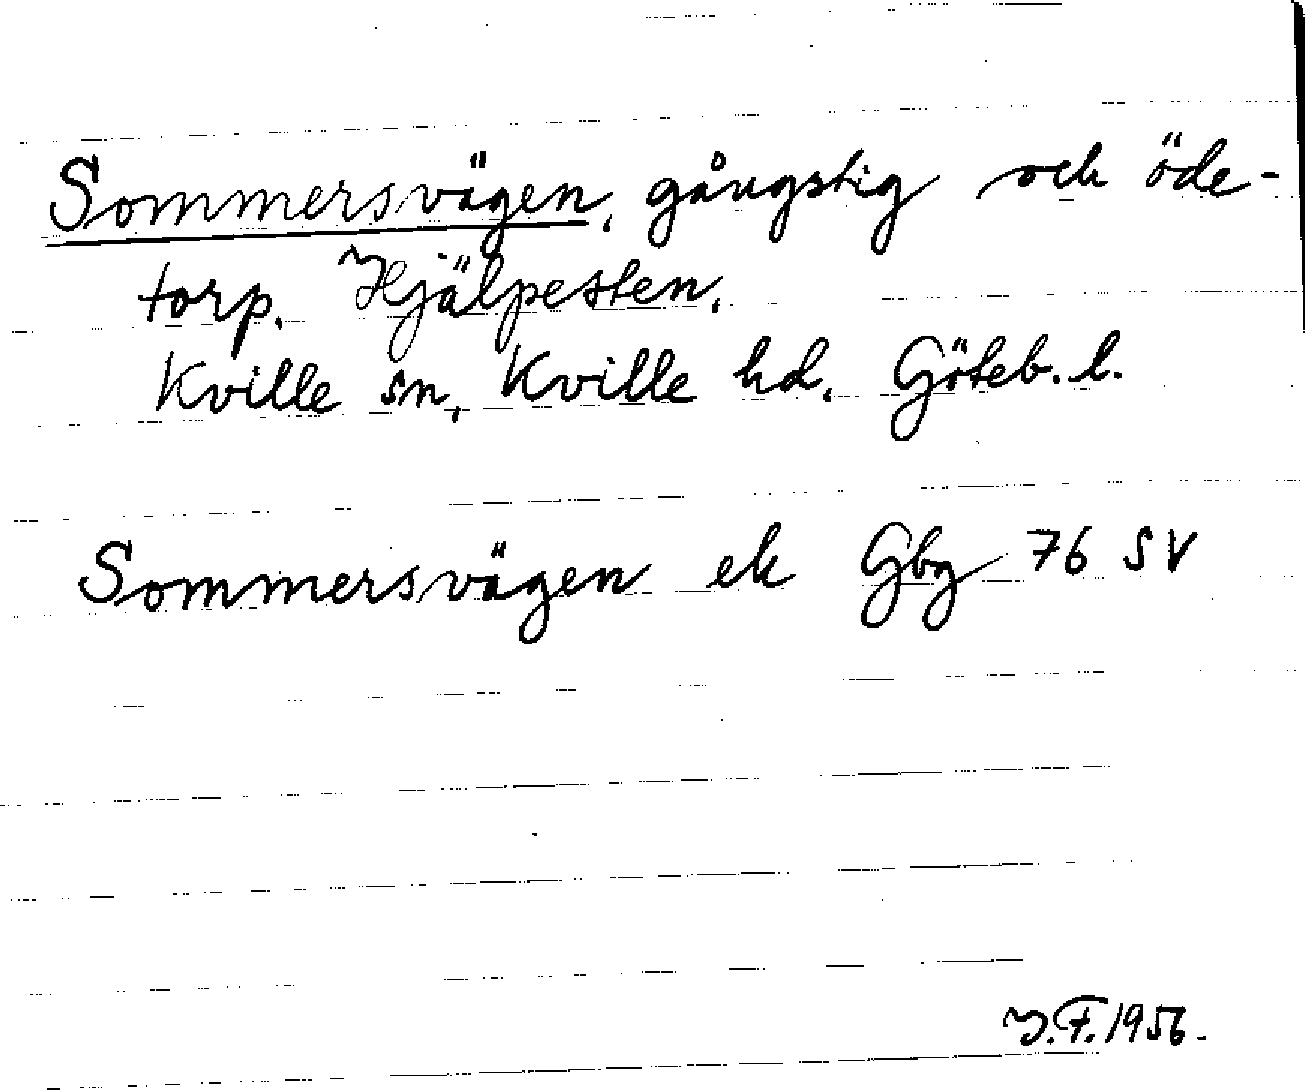 Sommersvägen, gångstig och öde-
torp. Hjälpesten.
Kville sn, Kville hd, Göteb. l.
Sommersvägen ek Gbg 76 SV
J.F. 1956.